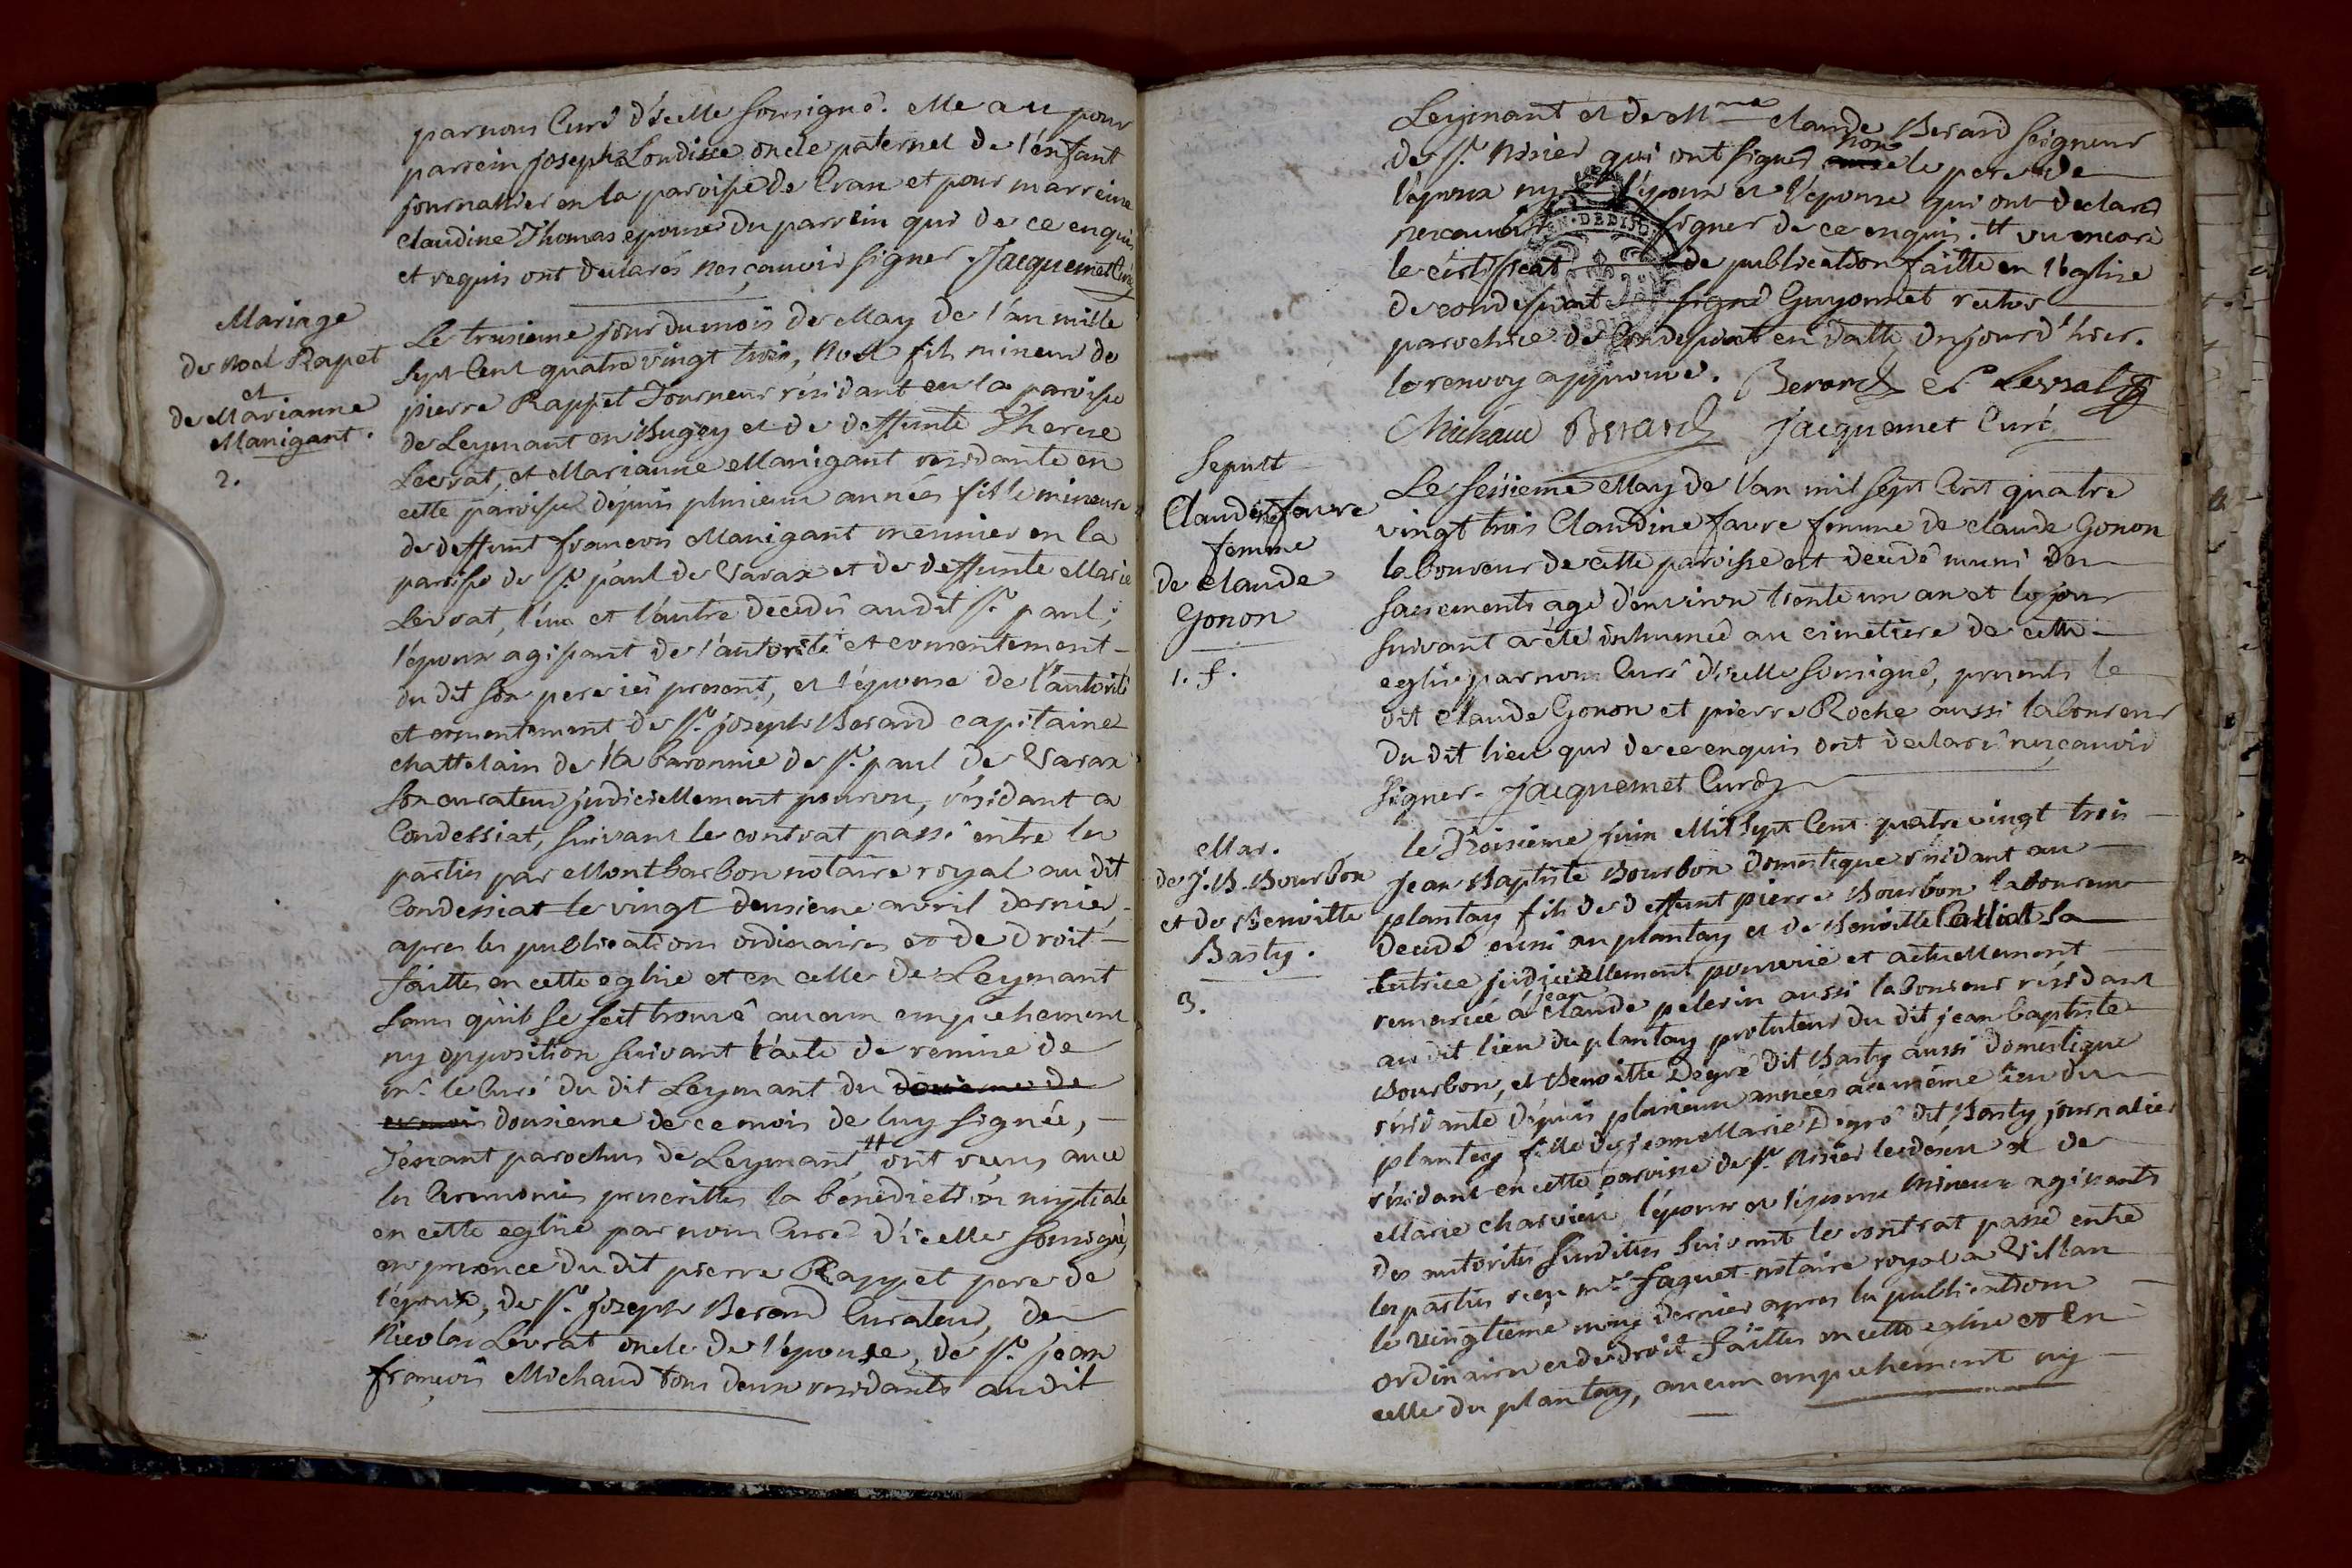 par nous Curé d'icelle soussigné. elle a eu pour
parrein joseph Londisse oncle paternel de l'enfant
journallier en la paroisse de Cran et pour marreine
claudine Thomas epouse du parrein qui de ce enquis
et requis ont declarés ne sçauvoir signer. Jacquemet Curé
Mariage
de Noel Rapet
et
de Marianne
Manigant.
2.
Le treisieme jour du mois de May de l'an mille
sept Cent quatre vingt trois, Noel fils mineur de
pierre Rappet Tourneur résidant en la paroisse
de Leymant en Bugey et de deffunte Therese
Levrat, et Marianne Manigant residante en
cette paroisse depuis plusieurs années fille mineure
de deffunt francois Manigant meunier en la
paroisse de st. paul de Varax et de deffunte Marie
Levrat, l'un et l'autre décédés au dit st. paul;
l'époux agissant de l'autorité et consentement
du dit son pere icî present, et l'épouse de l'autorité
et consentement de sr. joseph Berard capitaine
chattelain de la baronnie de st. paul de Varax
son curateur judiciellement pourvu, résidant a
Condessiat, suivant le contrat passé entre les
parties par Montbarbon notaire royal au dit
Condessiat le vingt deusieme avril dernier,
apres les publications ordinaires et de droit
faittes en cette eglise et en celle de Leymant
sans qu'il se soit trouvé aucun empechement
ny opposition suivant l'acte de remise de
mr. le Curé du dit Leymant du douzieme de
ce mois dousieme de ce mois de luy signée,
parochus de Leymant, # ont reçus avec
les Ceremonies prescrittes la bénédiction nuptiale
en cette eglise par nous Curé d'icelle soussigné,
en presence du dit pierre Rappet pere de
l'époux, de sr. joseph Berard Curateur, de
Nicolas Levrat oncle de l'épouse, de sr. jean
françois Michaud tous deux residants audit
Leymant et de Mre claude Berard seigneur
de st. Nisier qui ont signés non le pere de
l'époux ny l'époux et l'épouse qui ont declarés
ne scauvoir signer de ce enquis. # vu encore
le certificat de publication faitte en l'eglise
de condessiat signé Guyonnet
parochiæ de Condessiat en datte du jour d'hier.
le renvoy approuvé. Berard et Levrat
Michaud Berard Jacquemet Curé
Sepult
Claudine favre
femme
de Claude
Gonon
1. f.
Le seisieme May de l'an mil sept Cent quatre
vingt trois Claudine favre femme de claude Gonon
laboureur de cette paroisse est decedé muni des
sacrements agé d'environ trente un an et le jour
suivant a été inhumé au cimetiere de cette
eglise par nous Curé d'icelle soussigné, presents le
dit claude Gonon et pierre Roche aussi laboureur
du dit lieu qui de ce enquis ont declaré ne sçauvoir
signer. Jacquemet Curé
Mar.
de J. B. Bourbon
et de Benoitte
Basty.
3.
le Troisieme juin Mil sept Cent quatre vingt trois
Jean Baptiste Bourbon domestique residant au
plantay fils de deffunt pierre Bourbon laboureur
decedé aussi au plantay et de Benoitte Carliat sa
tutrice judiciellement pourvue et actuellement
remariée à jean claude pelerin aussi laboureur résidant
au dit lieu du plantay protuteur du dit jean baptiste
Bourbon, et Benoitte Degré dit Basty aussi domestique
résidante depuis plusieurs années au même lieu du
plantay fille de jean Marie Degré dit Basty journalier
résidant en cette paroisse de st. Nisier le desert et de
Marie charvieu, l'époux et l'épouse mineurs agissants
des autorités susdittes suivant le contrat passé entre
les parties reçu mre. Faguet notaire royal a Villars
le vingtieme may dernier apres les publications
ordinaires et de droit faittes en cette eglise et en
celle du plantay, aucun empechement ny